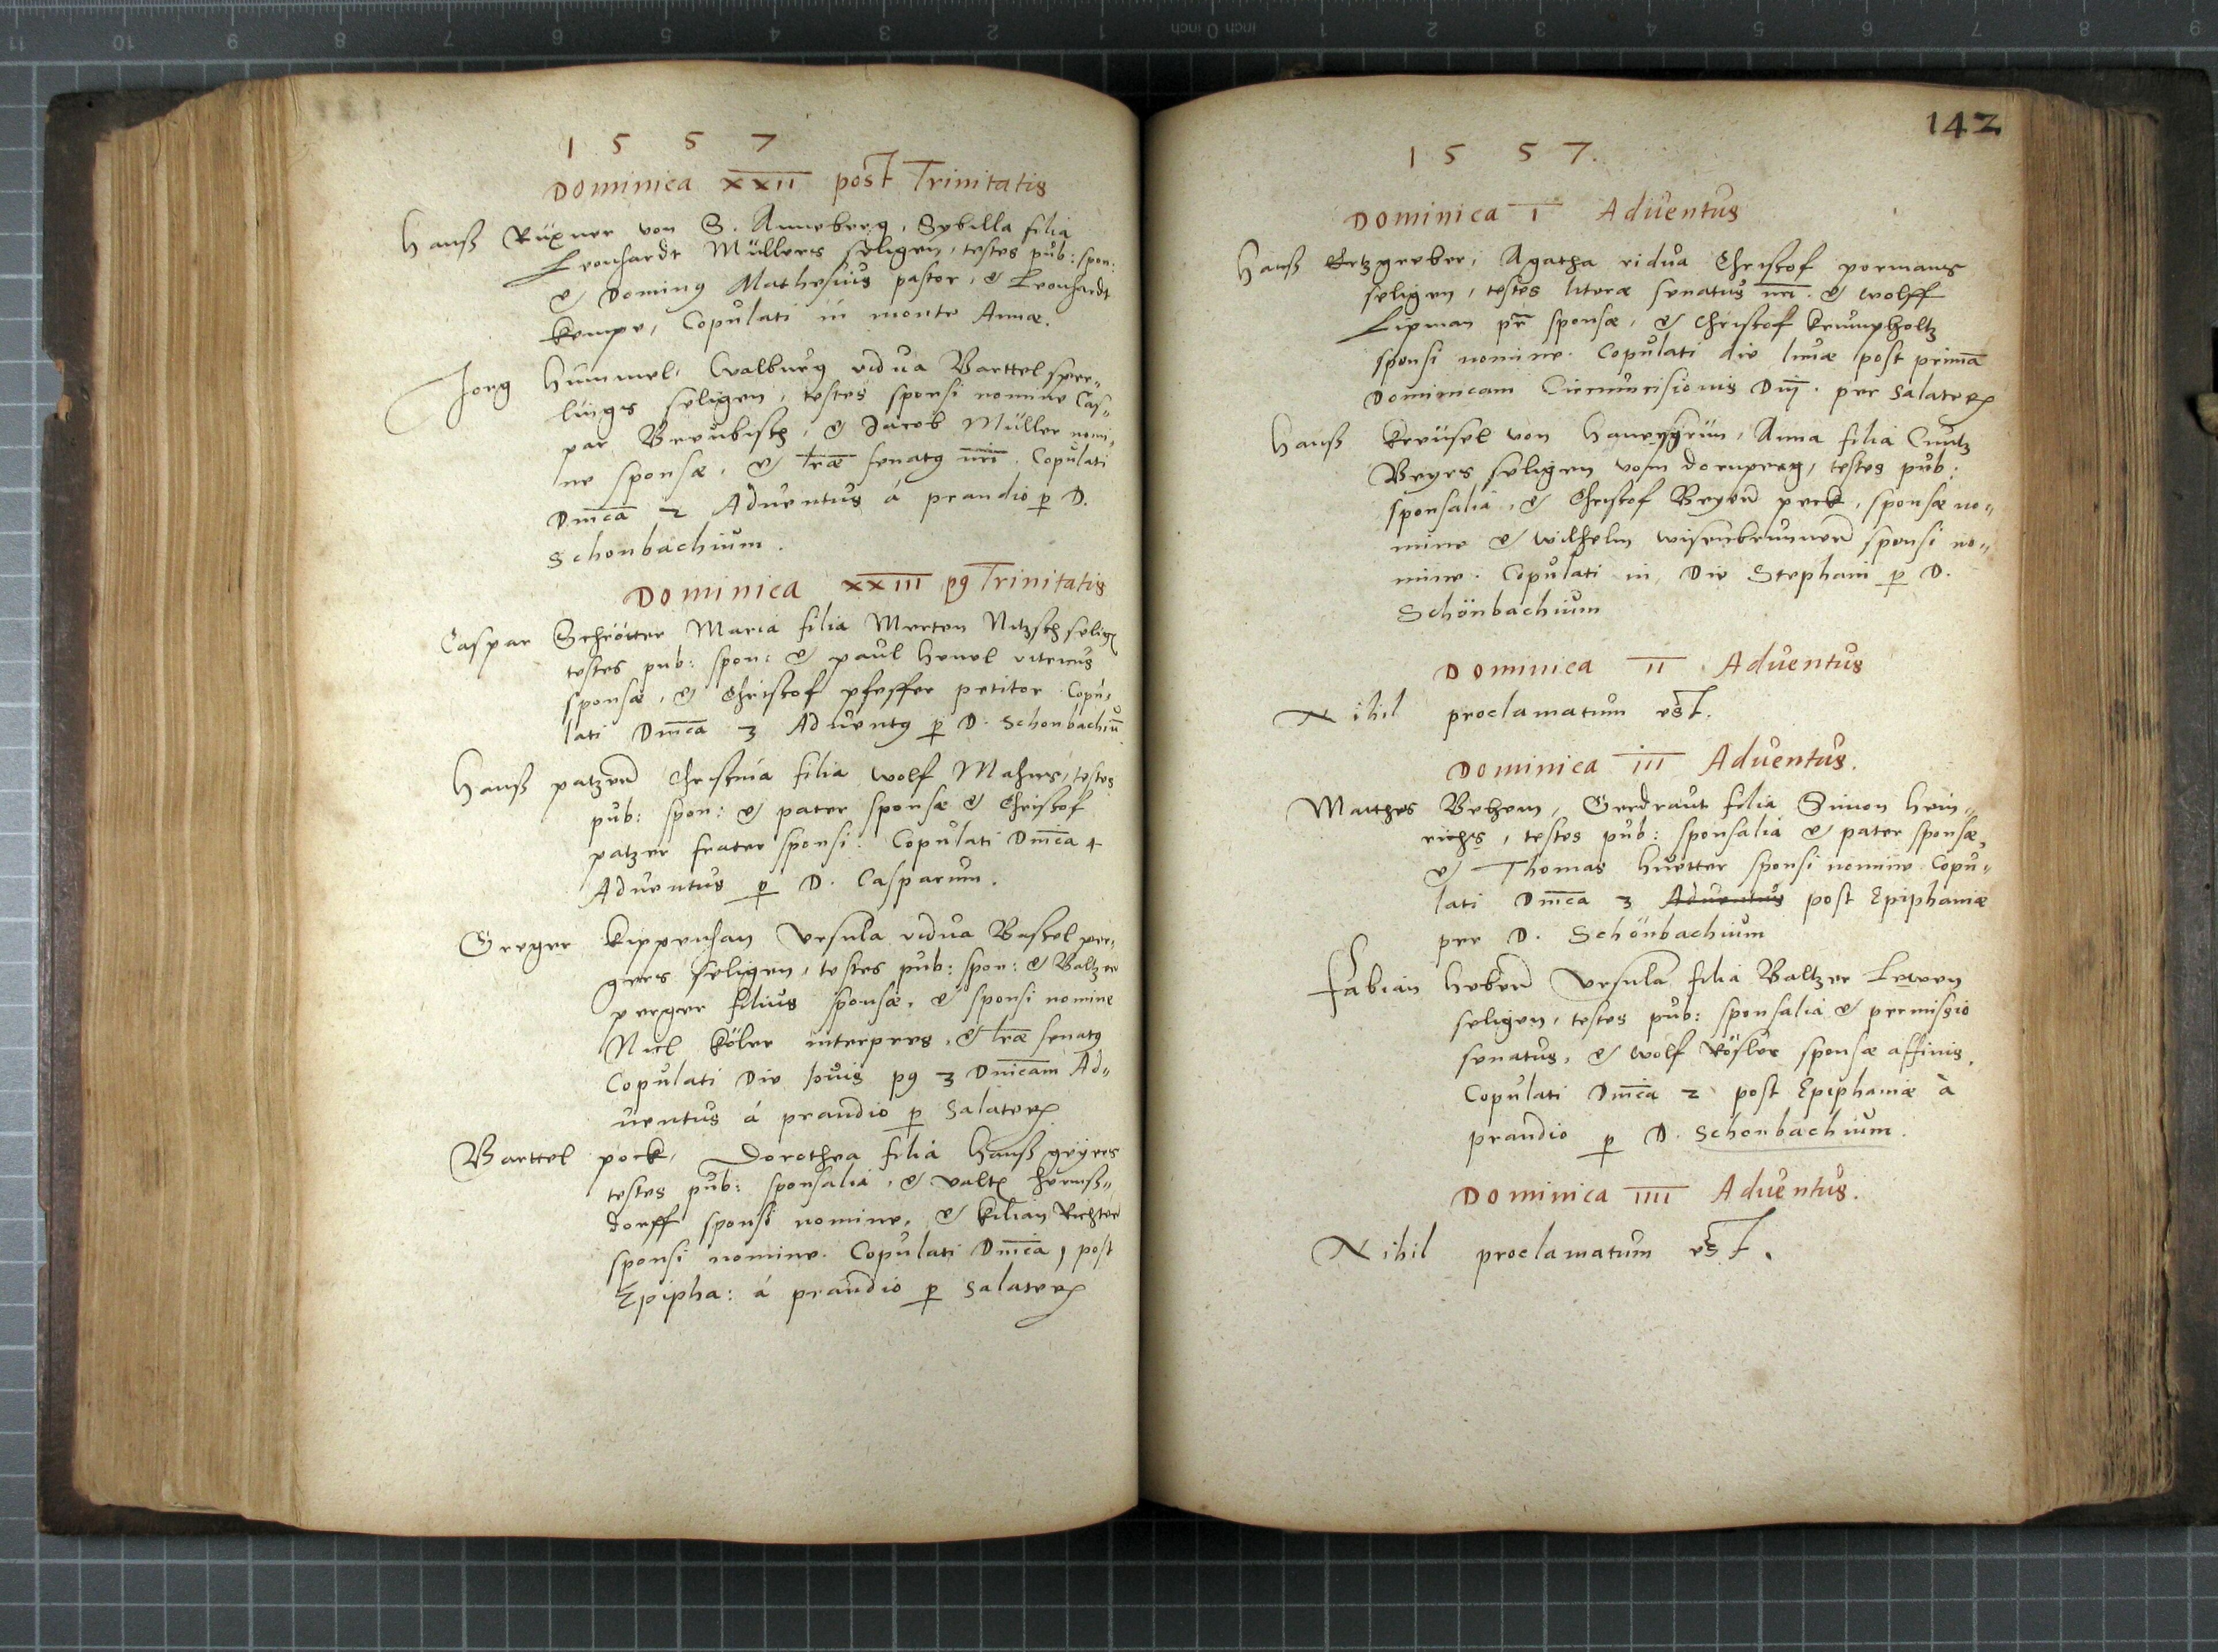 1 5 5 7
Dominica XXII post Trinitatis
Hanß Rüxner von S. Anneberg, Sybilla filia
Leonhardt Müllers seligen, testes pub: spon:
& Dominꝰ Mathesius pastor, & Leonhardt
Kempe, Copulati in monte Annæ.
Jorg Hummel, Walburg vidua Barttel sper„
lings seligen, testes sponsi nomine Cas„
par Breubisch, & Jacob Müller nomi„
ne sponsæ, & lr̄æ senatꝰ nr̄i. Copulati
Dm̄ca 2 Aduentus á prandio ꝑ D.
Schonbachium.
Dominica XXIII pꝰ Trinitatis
Caspar Schrötter Maria filia Merten Nitzsch selig
testes pub: spon: & paul Henel vitricus
sponsæ, & Christof pfeffer petitor. Copu„
lati Dm̄ca 3 Aduentꝰ ꝑ D. Schonbachiū
Hanß patzer Christina filia Wolf Mahns, testes
pub: spon: & pater sponsæ & Christof
patzer frater sponsi. Copulati Dm̄ca 4
Aduentus ꝑ D. Casparum.
Greger Kippenhan Vrsula vidua Bastel per„
gers seligen, testes pub: spon: & Baltzer
perger filius sponsæ, & sponsi nomine
Nicl Köler interpres, & lr̄æ senatꝰ
Copulati Die Jouis pꝰ 3 Dn̄icam Ad„
uentus á prandio ꝑ Salaterꝫ
Barttel pock, Dorothea filia Hanß geyers
testes pub: sponsalia, & Valtꝫ Hermß„
dorff sponsi nomine, & Kilian Richter
sponsi nomine. Copulati Dm̄ca 1 post
Epipha: á prandio ꝑ Salaterꝫ
142
1 5 5 7.
Dominica I Aduentus
Hanß Ertzgreber, Agatha vidua Christof pormans
seligen, testes literæ senatus nr̄i. & Wolff
Lipman pr̄ sponsæ, & Christof Krumpholtz
sponsi nomine. Copulati die lunæ post primā
Dominicam Circumcisionis Dn̄j. per Salaterꝫ
Hanß Kreüsel von Haneysgrün, Anna filia Cuntz
Beyers seligen vom dornperg, testes pub:
sponsalia, & Christof Beyer peck, sponsæ no„
mine & Wilhelm Wisenbrunner sponsi no„
mine. Copulati in Die Stephani ꝑ D.
Schönbachium
Dominica II Aduentus
Nihil proclamatum est.
Dominica III Aduentus.
Matthes Behem, Gerdraut filia Simon Hein„
richs, testes pub: sponsalia & pater sponsæ,
& Thomas Huetter sponsi nomine. Copu„
lati Dm̄ca 3 Aduentus post Epiphaniæ
per D. Schönbachium
Fabian Heber Vrsula filia Baltzer Lewen
seligen, testes pub: sponsalia & permissio
senatus, & Wolf Rösler sponsæ affinis.
Copulati Dm̄ca 2 post Epiphaniæ à
prandio ꝑ D. Schonbachium.
Dominica IIII Aduentus.
Nihil proclamatum est.